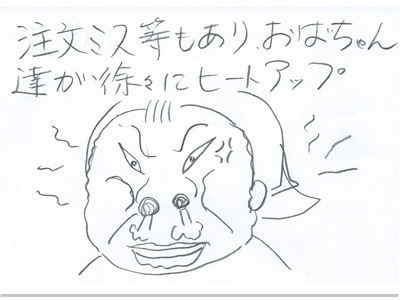 注文ミス等もあり、おばちゃん
達が徐々にヒートアップ